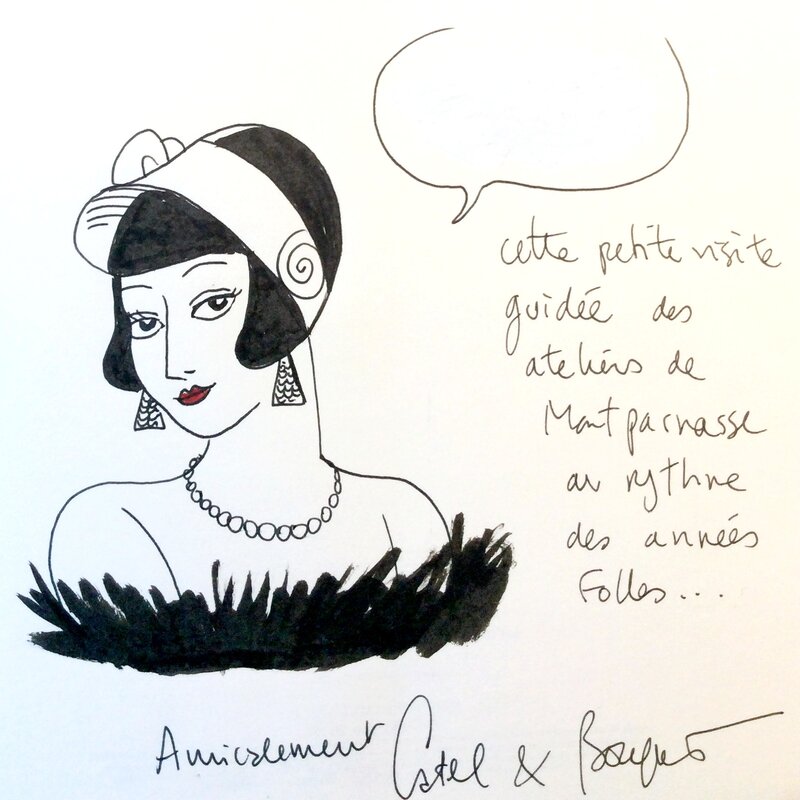 cette petite visite
guidée des
ateliers de
Montparnasse
au rythme
des années
Folles...
Amicalement Catel & Bocquet